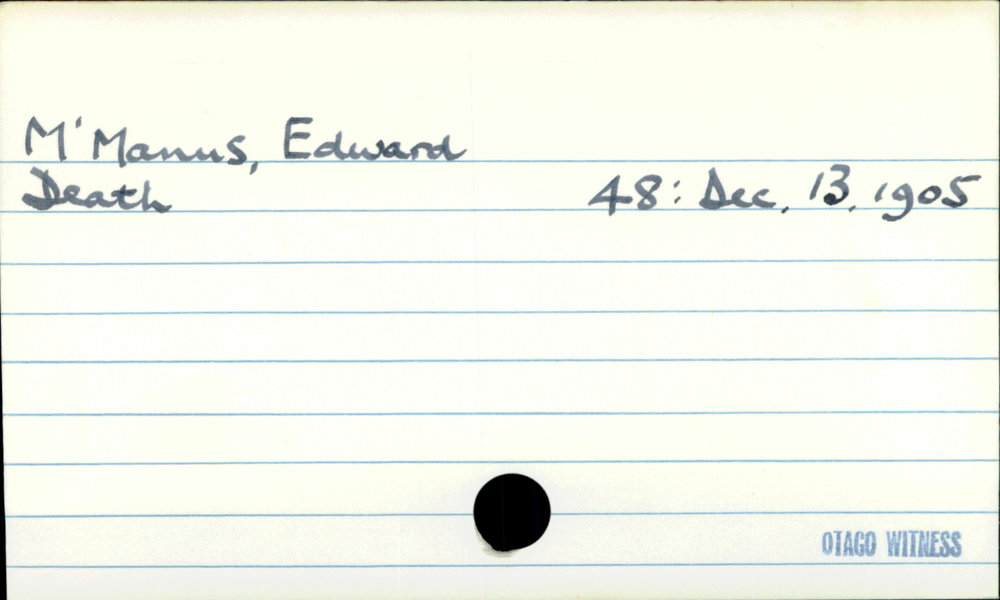 M'Manus, Edward
Death 48: Dec. 13. 1905
OTAGO WITNESS